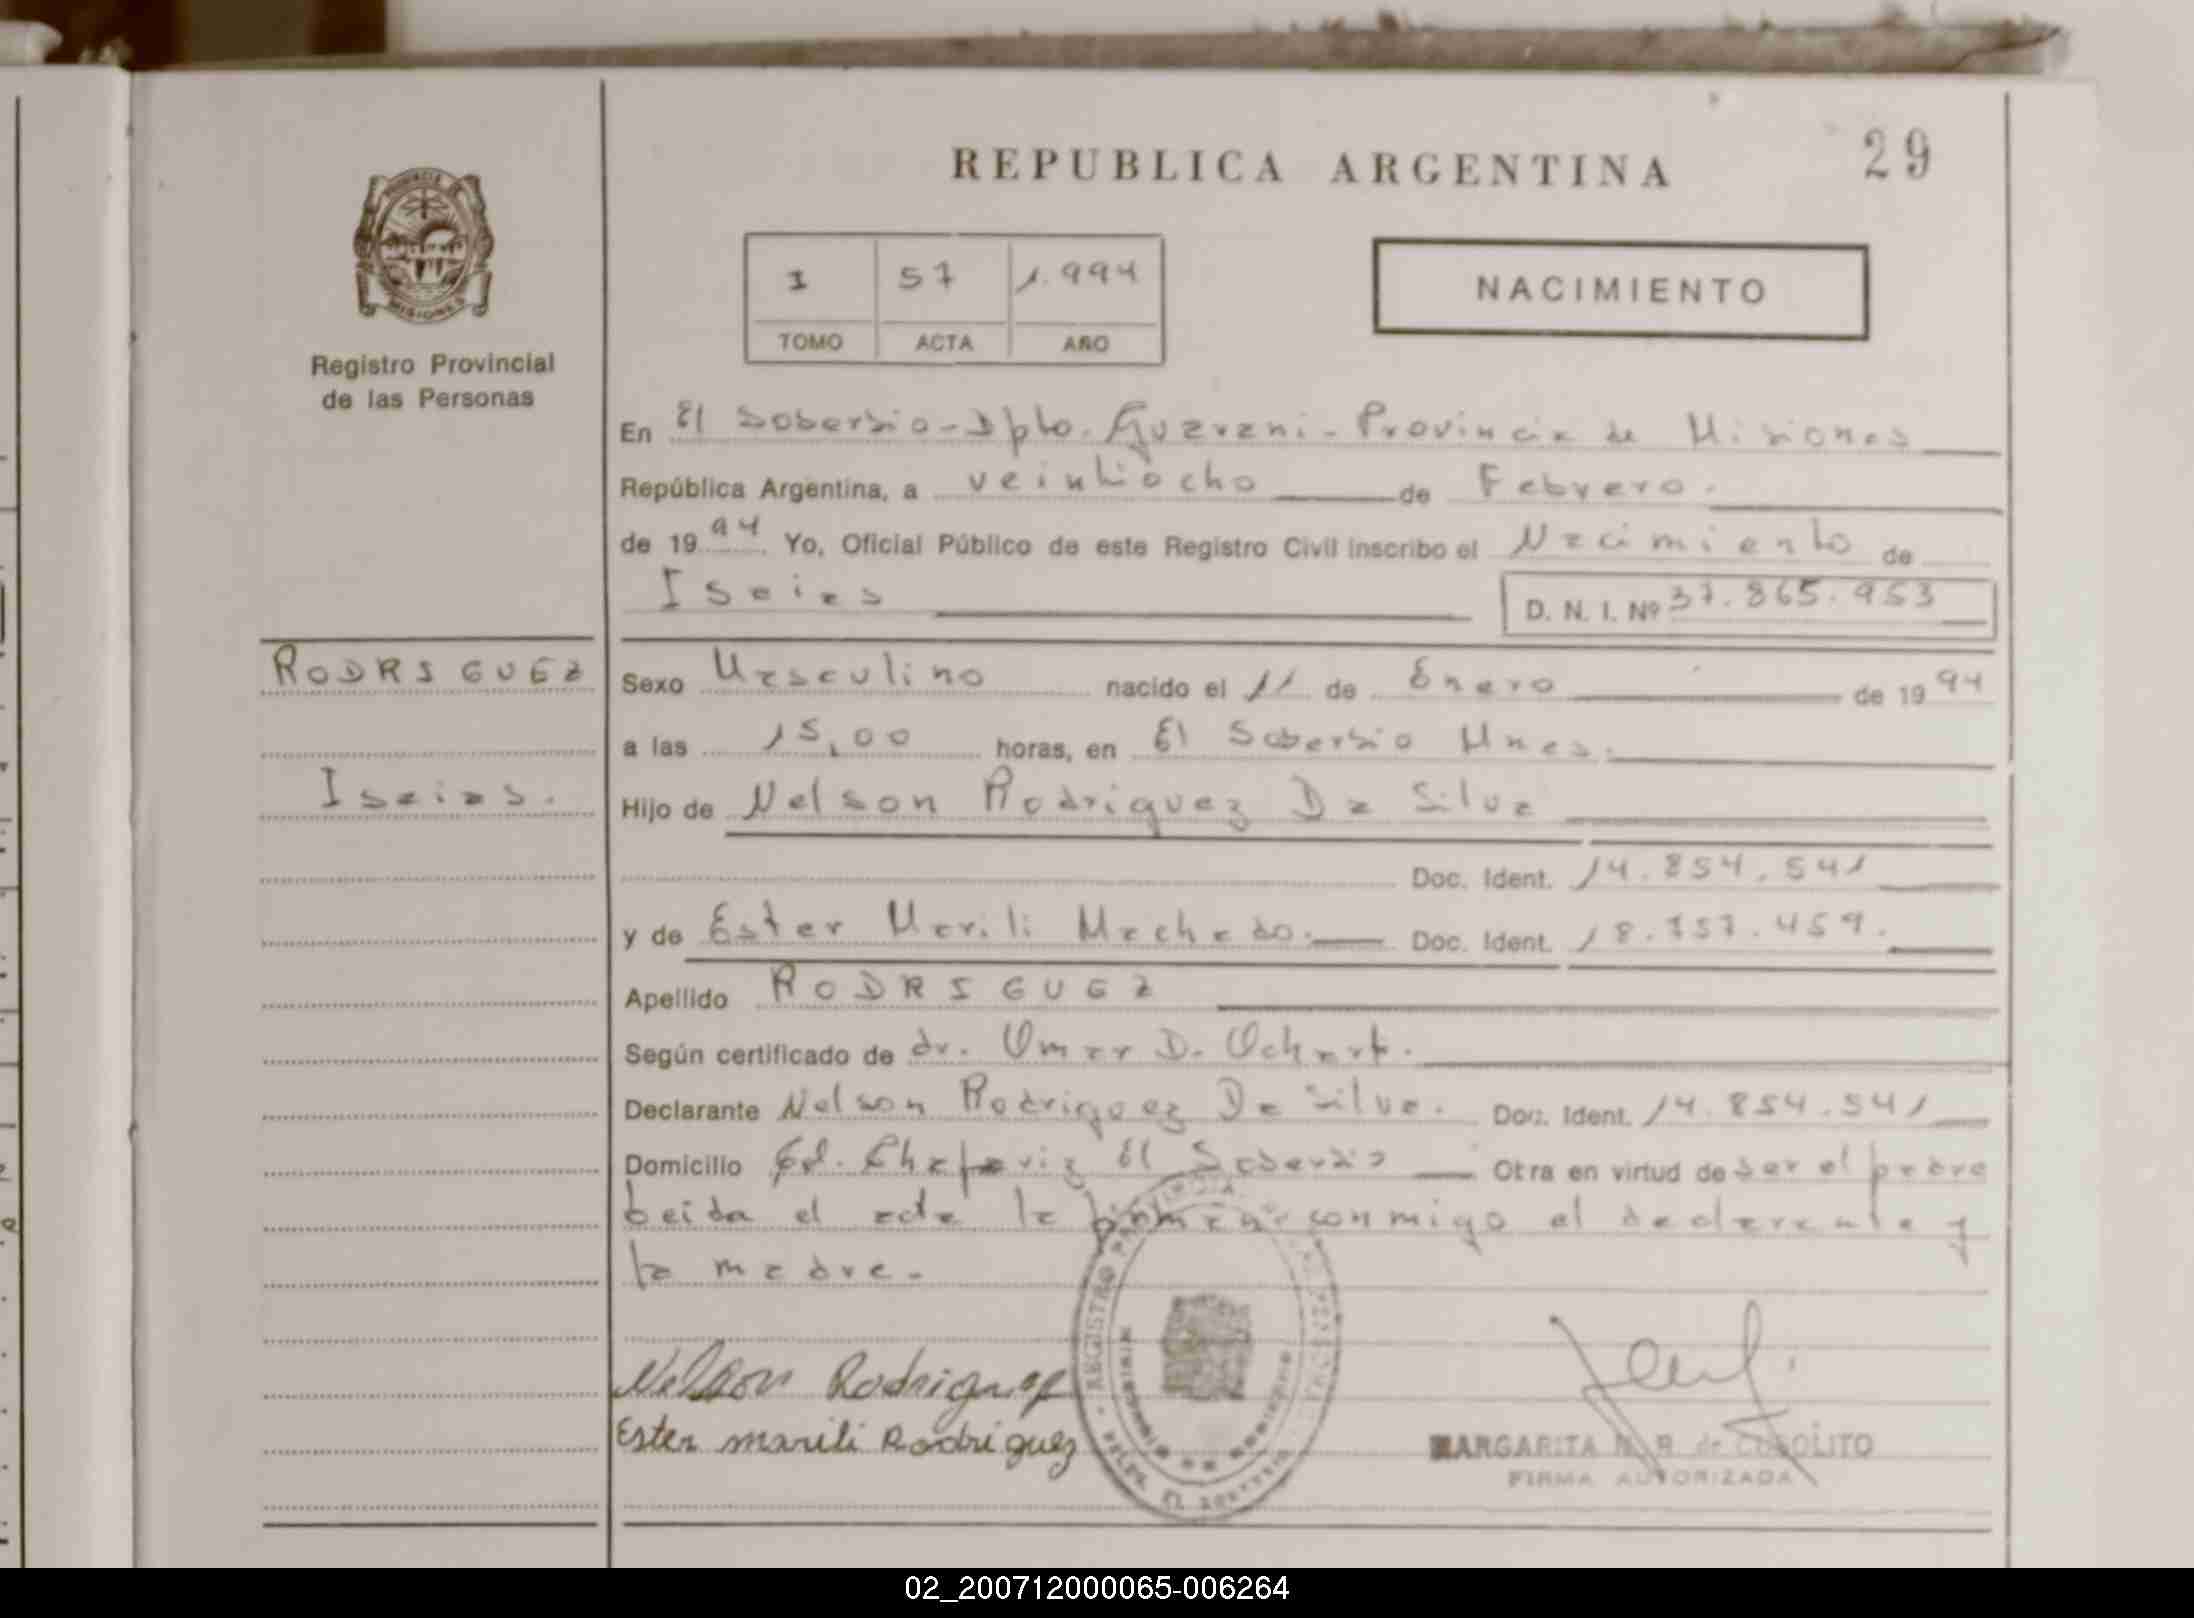 REPUBLICA ARGENTINA
29
PROVINCIA DE
MISIONES
Registro Provincial
de las Personas
I 57 1.994
TOMO ACTA AÑO
NACIMIENTO
En El Soberbio - Dpto. Guarani - Provincia de Misiones
República Argentina, a veintiocho de Febrero.
de 1994 Yo, Oficial Público de este Registro Civil inscribo el Nacimiento de
Isaias
D. N. I. Nº 37.865.953
RODRIGUEZ
Isaias.
Sexo Masculino nacido el 11 de Enero de 1994
a las 15,00 horas, en El Soberbio Mnes.
Hijo de Nelson Rodriguez Da Silva
Doc. Ident. 14.854.541
y de Ester Marili Machado. Doc. Ident. 18.757.459.
Apellido RODRIGUEZ
Según certificado de dr. Omar D. Ochart.
Declarante Nelson Rodriguez Da Silva. Doc. Ident. 14.854.541
Domicilio El Soberbio Otra en virtud de ser el padre
Leida el acta la firman conmigo el declarante y
la madre.
Nelson Rodriguez
Ester marili Rodriguez
REGISTRO PROVINCIAL DE LAS PERSONAS
MARGARITA de
FIRMA AUTORIZADA
02_200712000065-006264